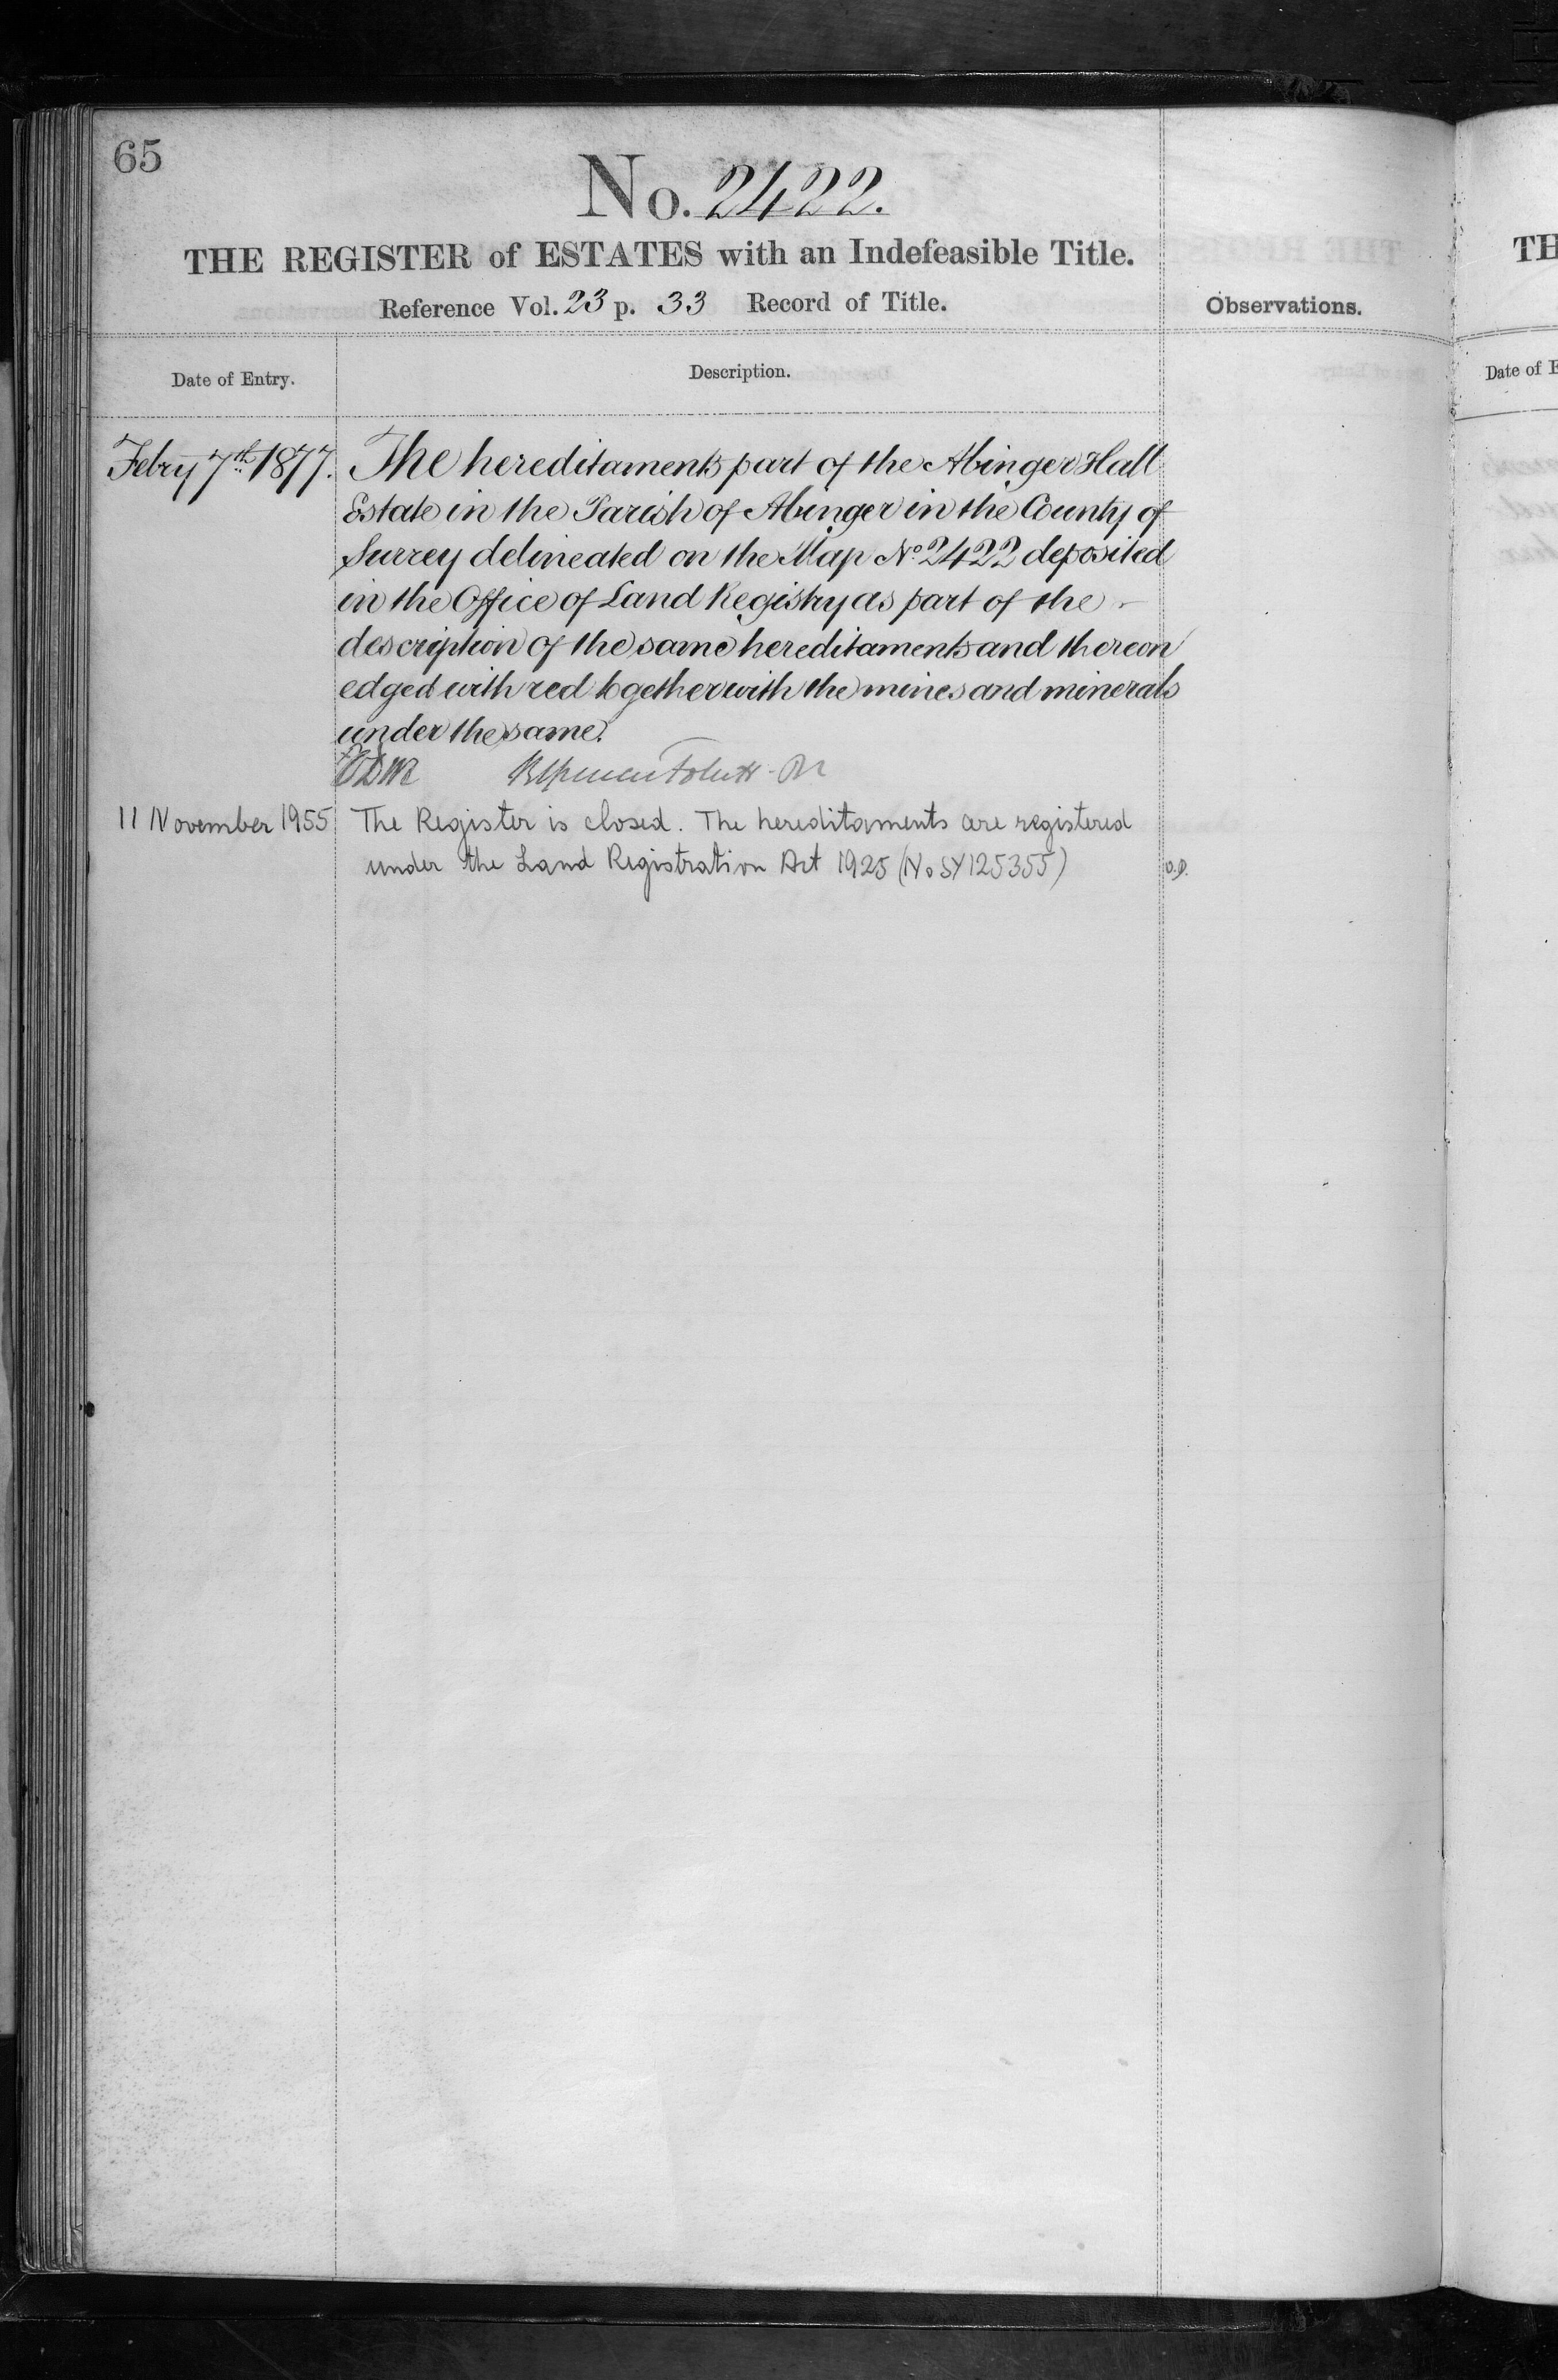 65
No. 2422.
THE REGISTER of ESTATES with an Indefeasible Title.
Reference Vol. 23 p. 33 Record of Title.
Observations.
Date of Entry.
Description.
Febry 7th 1877.
The hereditaments part of the Abinger Hall
Estate in the Parish of Abinger in the County of
Surrey delineated on the Map No 2422 deposited
in the Office of Land Registry as part of the
description of the same hereditaments and thereon
edged with red together with the mines and minerals
under the same.
11 November 1955
The Register is closed. The hereditaments are registered
under the Land Registration Act 1925 (No SY125355)
TH
Date of E